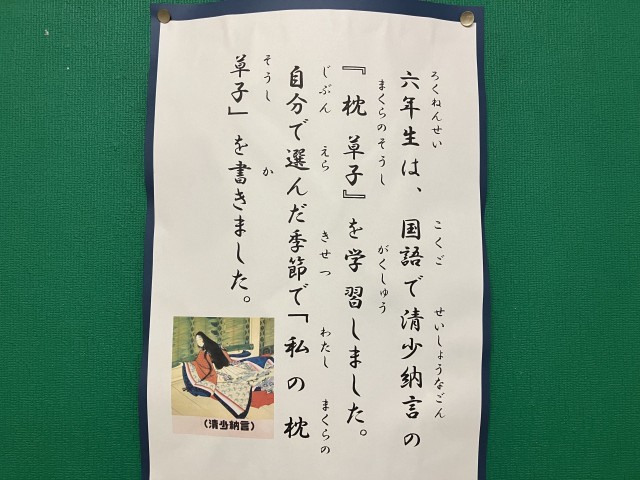 六年生は、国語で清少納言の
ろくねんせい こくご せいしょうなごん
『枕 草子』を学習しました。
まくらのそうし がくしゅう
自分で選んだ季節で「私の枕
じぶん えら きせつ わたし まくらの
草子」を書きました。
そうし か
(清少納言)